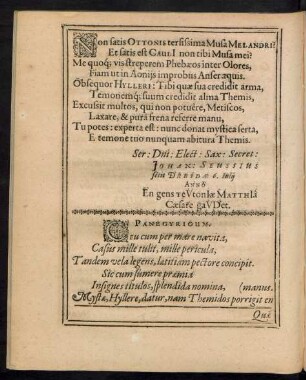 Non satis OTTONIS tersissima Musa MELANDRI?
Et satis est CAULI non tibi Musa mei?
Me quoq; vis strepere Phebæos inter Olores,
Fiam ut in Aonijs improbus Anser aquis.
Obsequor HYLLERI: Tibi quæ sua credidit arma,
Temonemq́; suum credidit alma Themis,
Excussit multos, qui non potuêre, Metiscos,
Laxare, & pura frena referre manu,
Tu potes: experta est: nunc donat mystica serta,
E temone tuo nunquam abitura Themis.
Ser: Dni: Elect: Sax: Secret:
Anno
En gens teVtonIæ MatthIâ
Cæsare gaVDet.
PANEGYRICUM.
Ceu cum per mare navita,
Casus mille tulit, mille pericula,
Tandem vela legens, latitiam pectore concipit.
Sic cum sumere præmia
Insignes titulos, splendida nomina, (manus.
Mystæ, Hyllere, datur, nam Themidos porrigit en
Qui